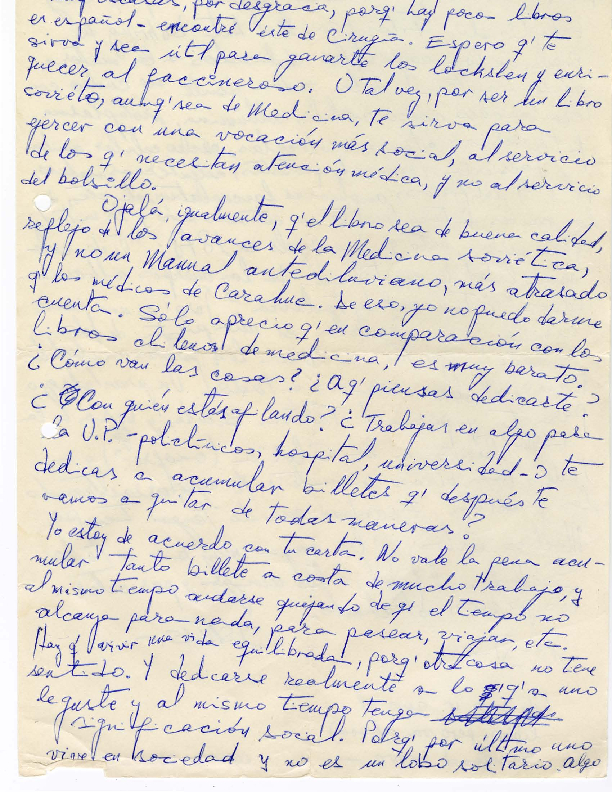 escasas, por desgracia, porq' hay pocos libros
en español - encontré éste de Cirugía. Espero q' te
sirva y sea útil para ganarte los lochsben y enri-
quecer al faccineroso. O tal vez, por ser un libro
soviéto, aunq' sea de Medicina, te sirva para
ejercer con una vocación más social, al servicio
de los q' necesitan atención médica, y no al servicio
del bolsillo.
Ojalá, igualmente, q' el libro sea de buena calidad,
reflejo de los avances de la Medicina soviética,
y no un Manual antediluviano, más atrasado
q' los médicos de Carahue. De eso, yo no puedo darme
cuenta. Sólo aprecio q' en comparación con los
libros chilenos de medicina, es muy barato.
¿Cómo van las cosas? ¿A q' piensas dedicarte?
¿Con quién estás afilando? ¿Trabajas en algo para
la U.P. - policlínicos, hospital, universidad - o te
dedicas a acumular billetes q' después te
vamos a quitar de todas maneras?
Yo estoy de acuerdo con tu carta. No vale la pena acu-
mular tanto billete a costa de mucho trabajo, y
al mismo tiempo andarse quejando de q' el tiempo no
alcanza para nada, para pasear, viajar, etc.
Hay q' vivir una vida equilibrada, porq' otra cosa no tiene
sentido. Y dedicarse realmente a lo q' a uno
le guste y al mismo tiempo tenga
significación social. Porq' por último uno
vive en sociedad y no es un lobo solitario. algo